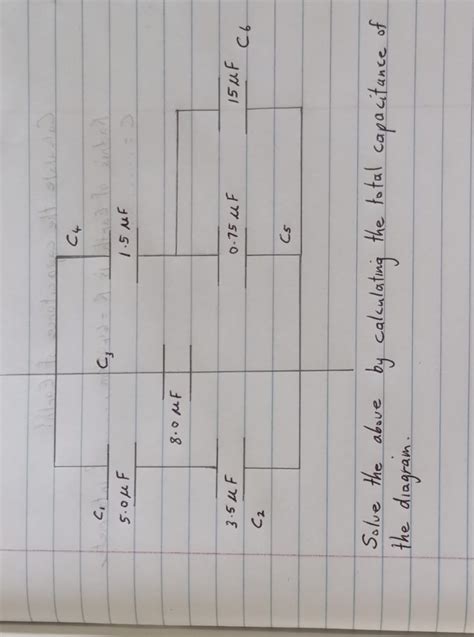 C1
5.0 μF
3.5 μF
C2
C3
8.0 μF
C4
1.5 μF
0.75 μF
C5
15 μF
C6
Solve the above by calculating the total capacitance of
the diagram.